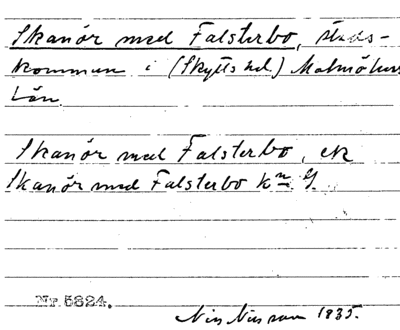 Skanör med Falsterbo, stads-
kommun i (Skytts hd.) Malmöhus
Län
Skanör med Falsterbo, ek
Skanör med Falsterbo
Nr 5824.
Nils Nilsson 1835.